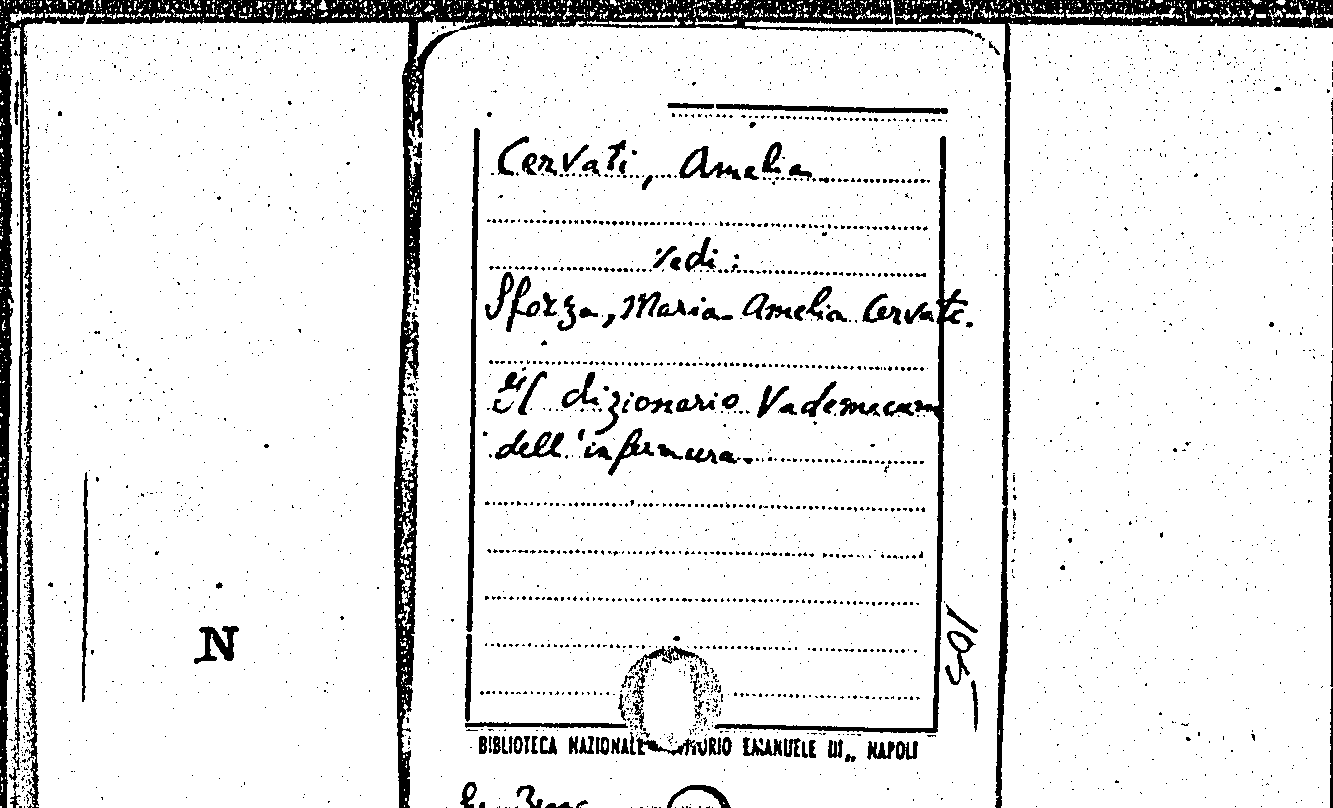 Cervati, Amelia
vedi:
Sforza, Maria Amelia Cervati.
Il dizionario Vademecum
dell'infermiera.
105
N
BIBLIOTECA NAZIONALE VITTORIO EMANUELE III„ NAPOLI